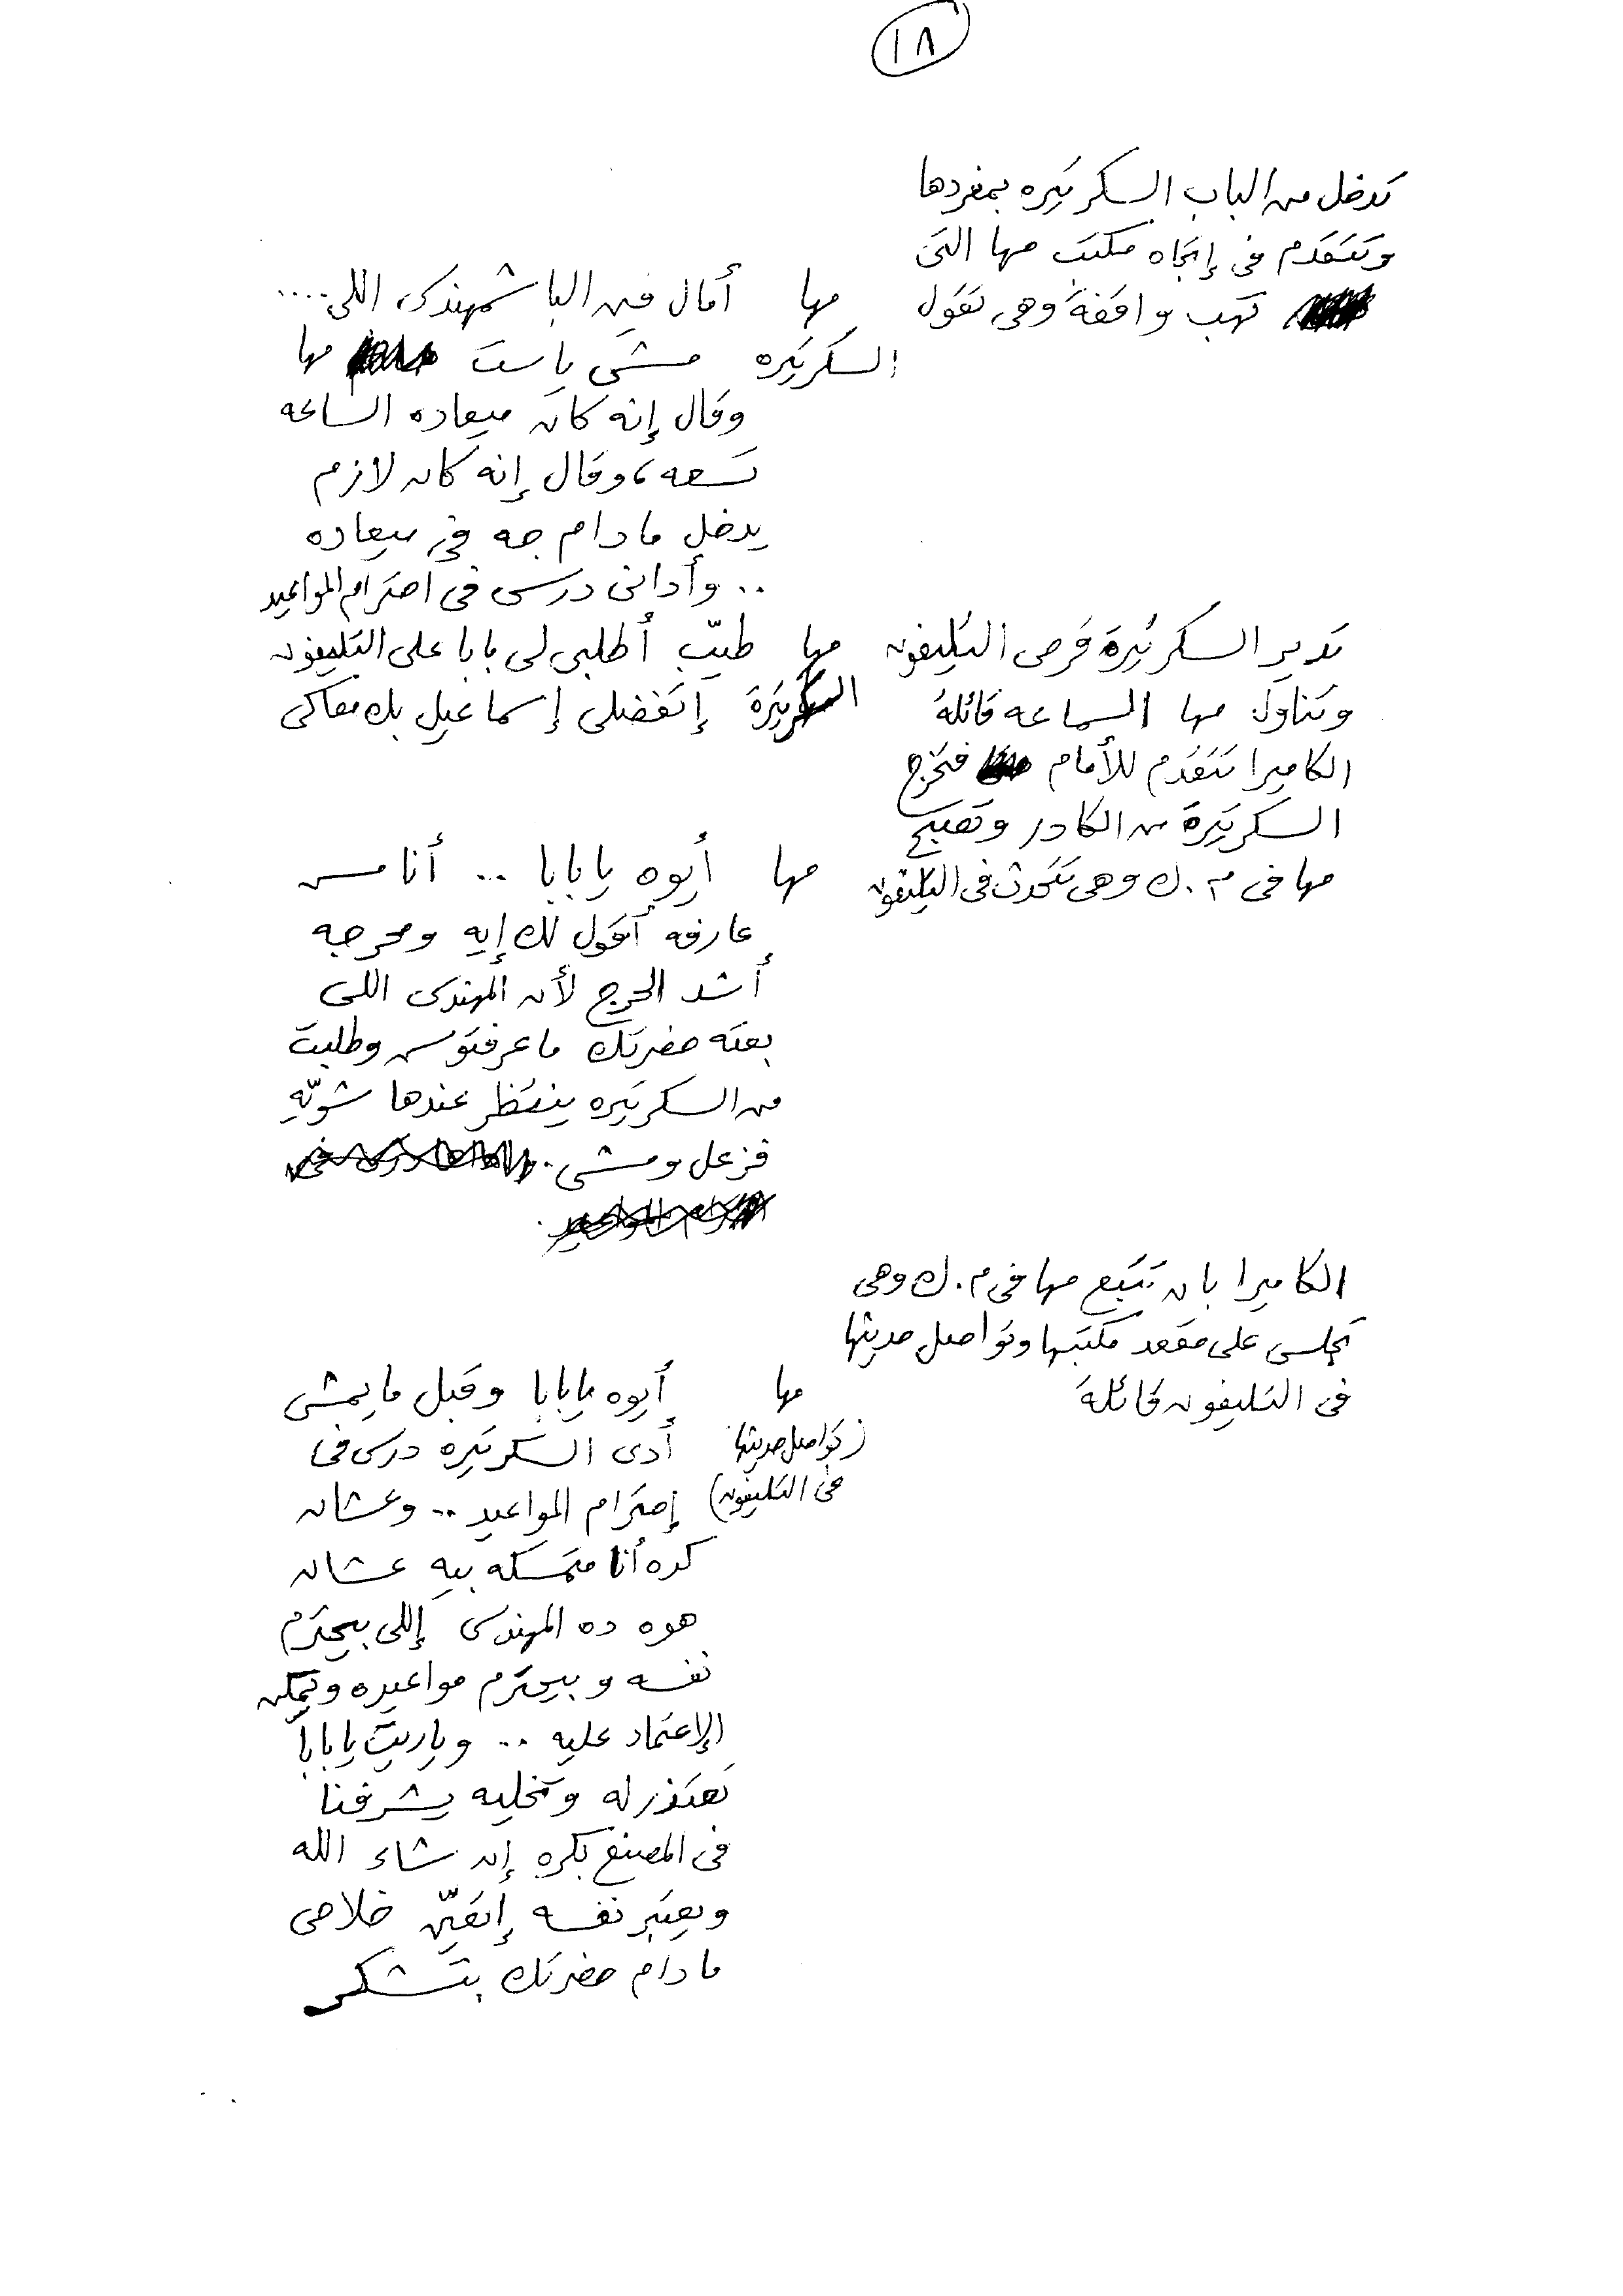 ١٨
تدخل من الباب السكرتيره بمفردها
وتتقدم فى إتجاه مكتب مها التى
تهب واقفة وهى تقول
مها أمال فين الباشمهندس اللى ....
السكرتيره مشى ياست مها
وقال إنه كان ميعاده الساعه
تسعه، وقال إنه كان لازم
يدخل مادام جه فى ميعاده
.. وأدانى درس فى احترام المواعيد
تدير السكرتيرة قرص التليفون
وتناول مها السماعه قائلة
مها طيّب أطلبى لى بابا على التليفون
السكرتيرة إتفضلى إسماعيل بك معاكى
الكاميرا تتقدم للأمام فتخرج
السكرتيرة من الكادر وتصبح
مها فى م . ك وهى تتحدث فى التليفون
مها أيوه يابابا .. أنا مش
عارفه أقول لك إيه ومحرجه
أشد الحرج لأن المهندس اللى
بعته حضرتك ماعرفتوش وطلبت
من السكرتيره ينتظر عندها شويّه
فزعل ومشى .
الكاميرا بان تتبع مها فى م . ك وهى
تجلس على مقعد مكتبها وتواصل حديثها
فى التليفون قائلة
مها أيوه يابابا وقبل مايمشى
(تواصل حديثها أدى السكرتيره درس فى
فى التليفون) إحترام المواعيد .. وعشان
كده أنا متمسكه بيه عشان
هوه ده المهندس إللى بيحترم
نفسه وبيحترم مواعيده ويمكن
الإعتماد عليه .. وياريت يابابا
تعتذر له وتخليه يشرفنا
فى المصنع بكره إن شاء الله
ويعتبر نفسه إتعيّن خلاص
مادام حضرتك بتشكر